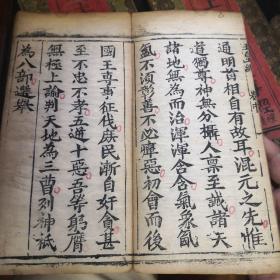 通明首相自有故耳混元之先惟
道獨尊神無分攝人稟至誠諸天
諸地無為而治渾渾含含氣象氤
氳不須彰善不必癉惡初會而後
國王專事征伐庶民漸自奸貪甚
至不忠不孝五逆十惡吾等躬膺
無極上諭判天地為三曹列神祇
為八部選舉